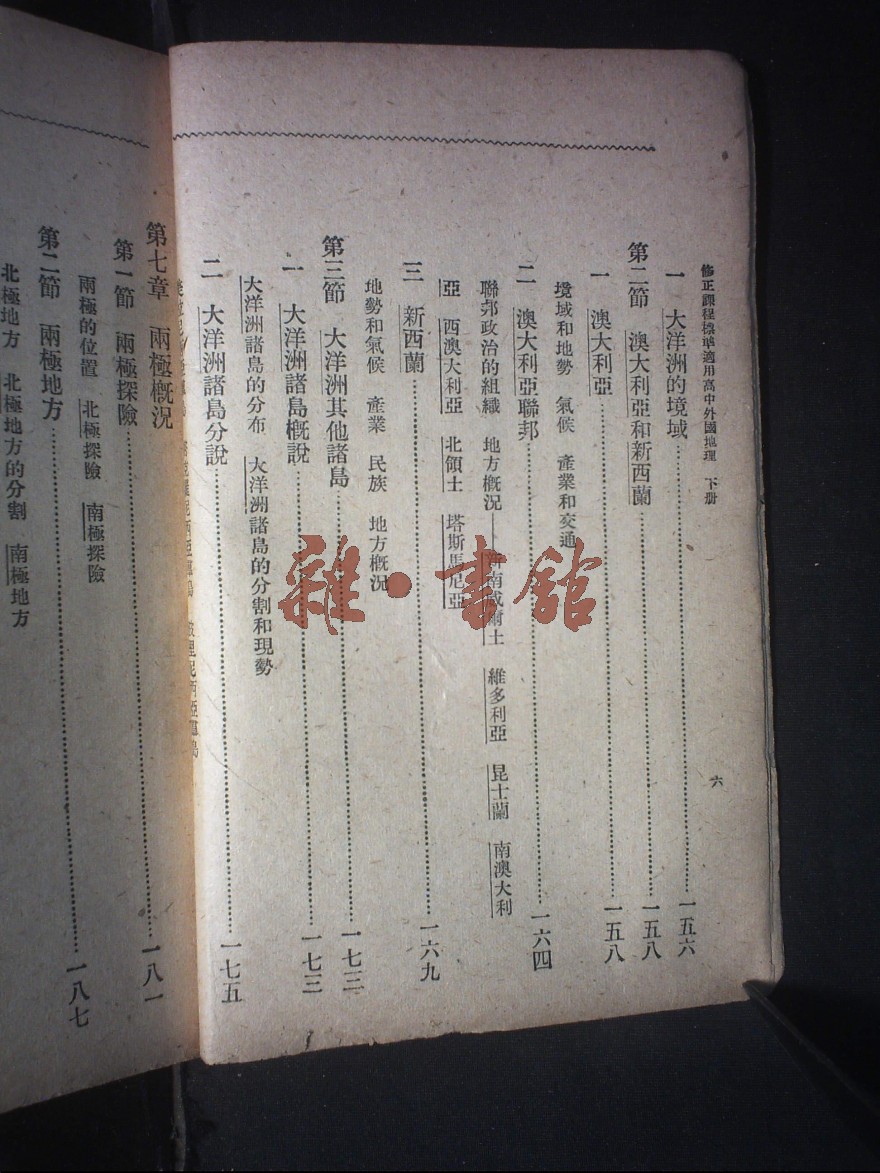 修正課程標準適用高中外國地理 下册 六
一 大洋洲的境域……一五六
第二節 澳大利亞和新西蘭……一五八
一 澳大利亞……一五八
境域和地勢 氣候 產業和交通
二 澳大利亞聯邦……一六四
聯邦政治的組織 地方概況——新南威爾士 維多利亞 昆士蘭 南澳大利
亞 西澳大利亞 北領土 塔斯馬尼亞
三 新西蘭……一六九
地勢和氣候 產業 民族 地方概況
第三節 大洋洲其他諸島……一七三
一 大洋洲諸島概說……一七三
大洋洲諸島的分布 大洋洲諸島的分割和現勢
二 大洋洲諸島分說……一七五
第七章 兩極概況
第一節 兩極探險……一八一
兩極的位置 北極探險 南極探險
第二節 兩極地方……一八七
北極地方 北極地方的分割 南極地方
雜·書館